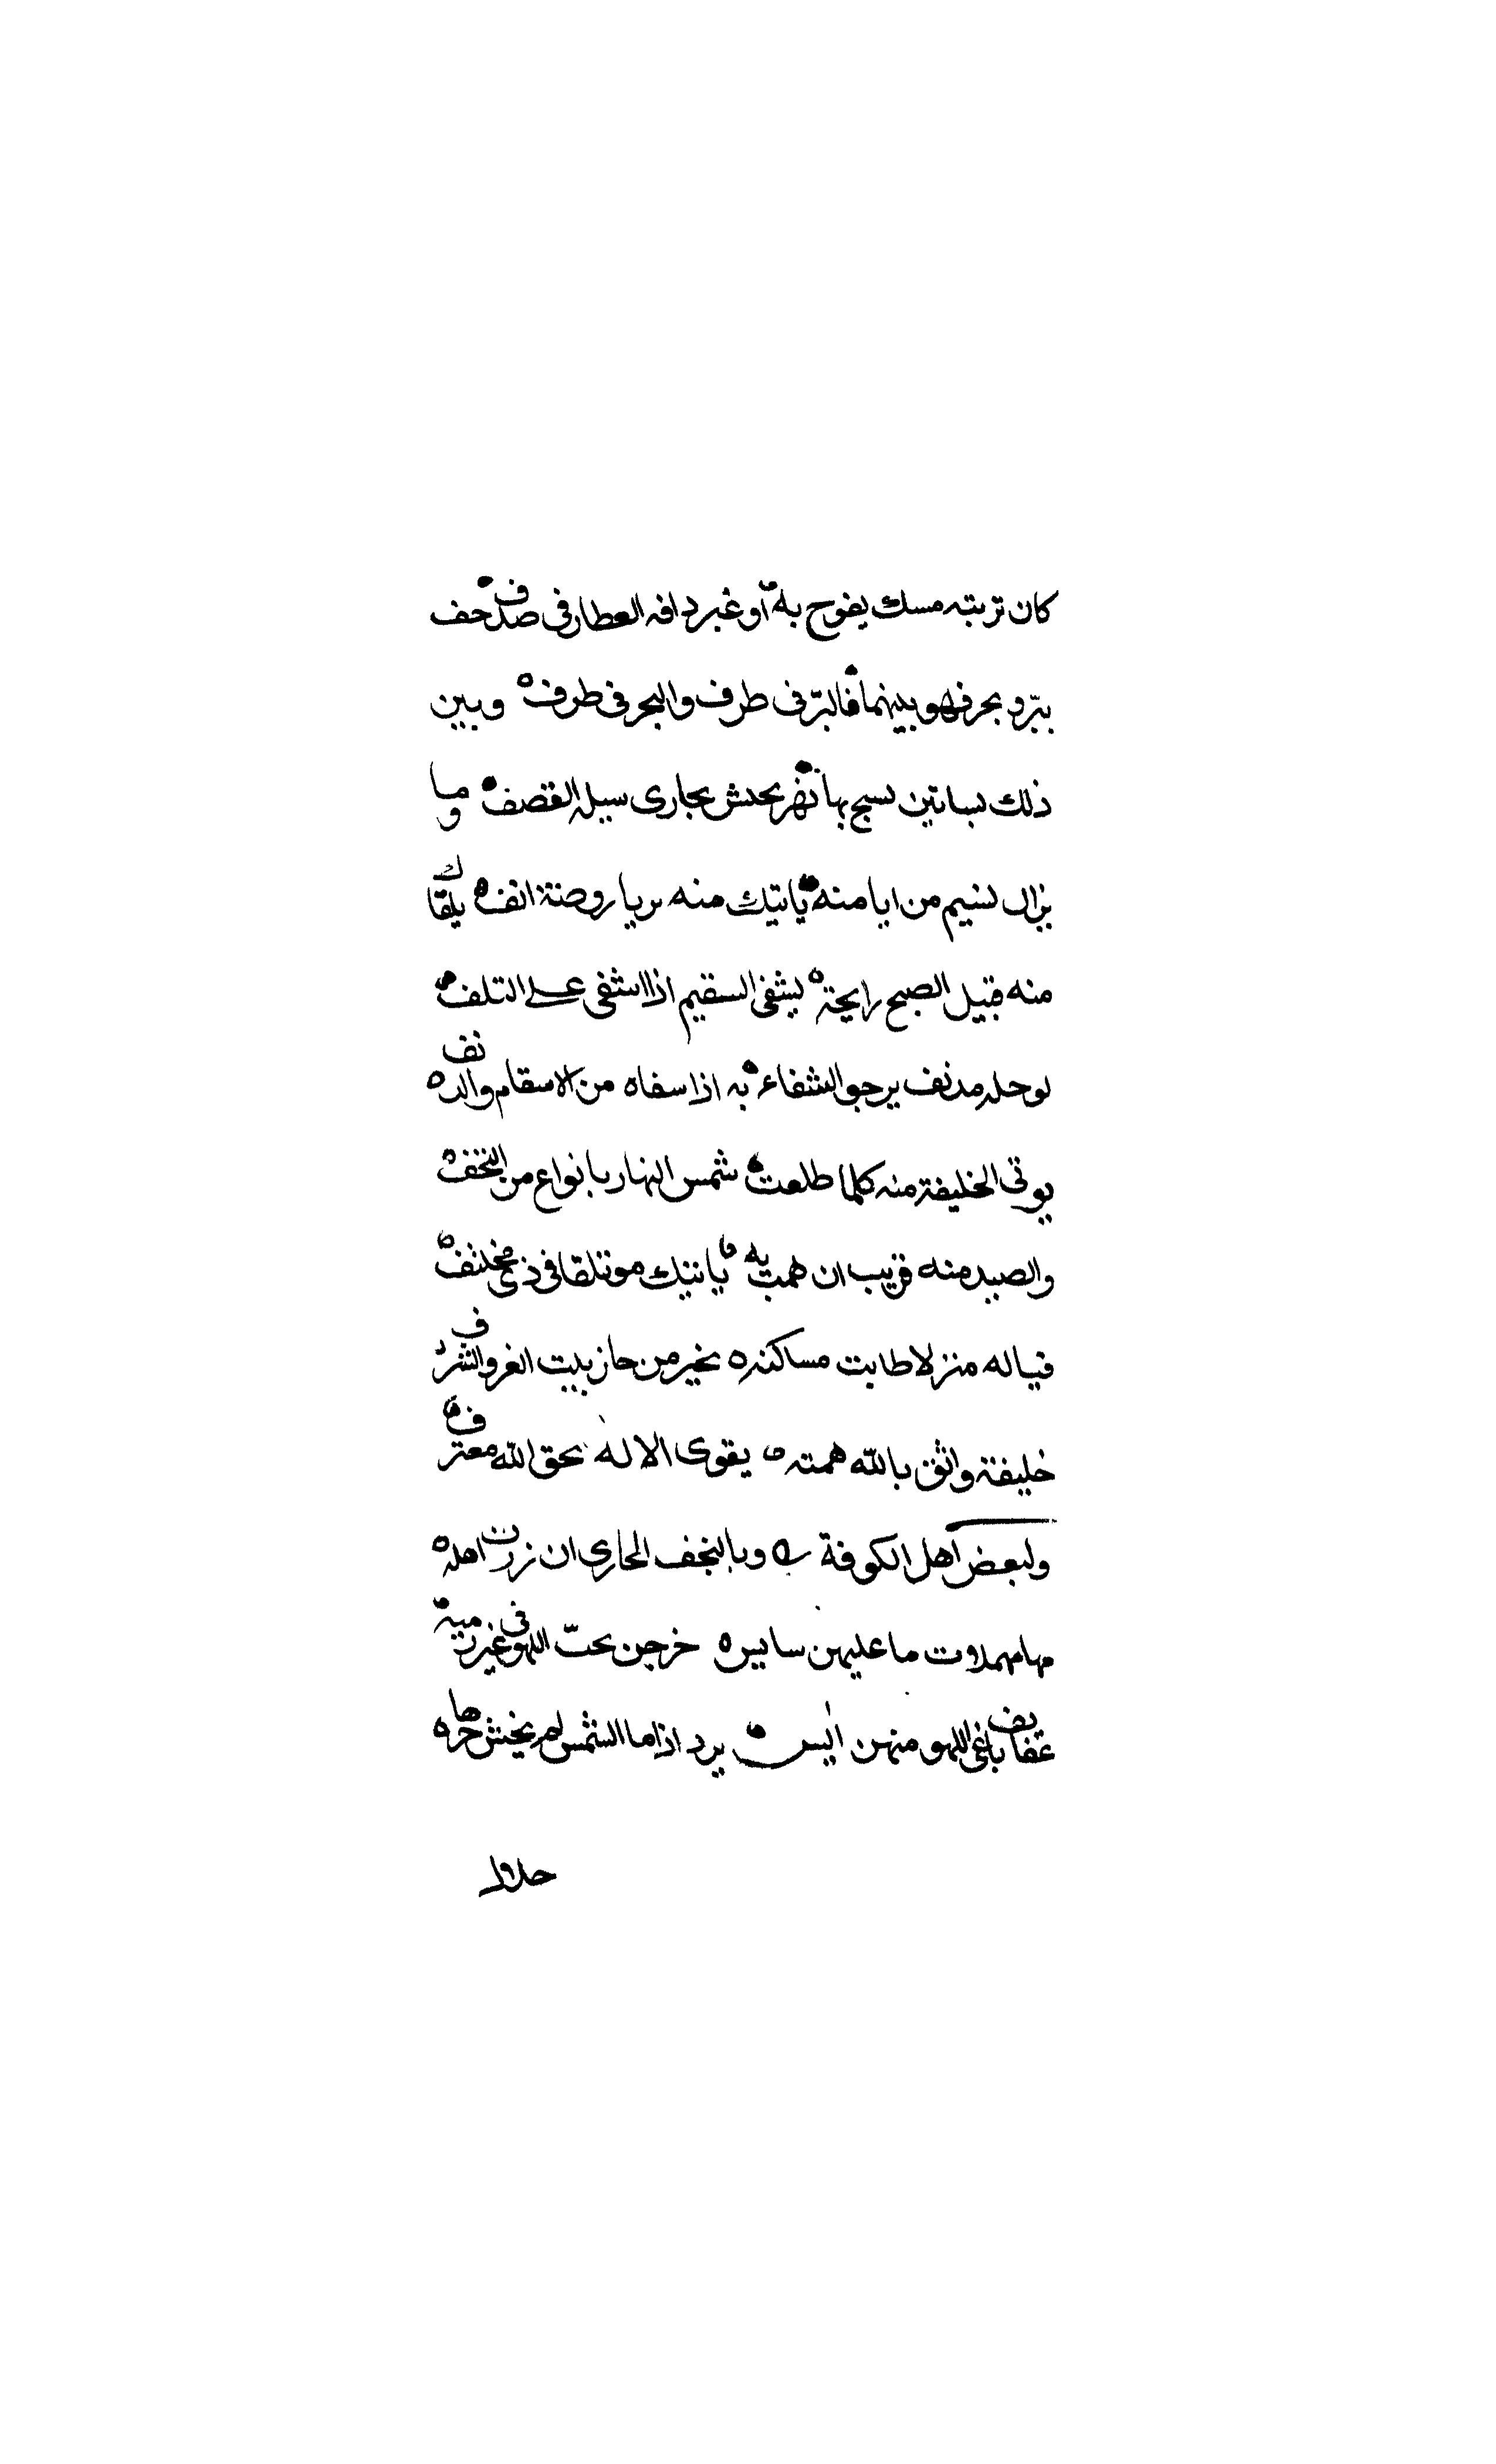 كان تربته مسك يفوح به او عنبر دافه العطار فى صدف حف
ببرّ و بحر فهو بينهما فالبرّ فى طرف والبحر فى طرف وبين
ذلك بساتين تسيح بها نهر يجيش بجارى سيله القصف وما
يزال نسيم من ايامنه ياتيك منه بريا روضة انف يلقاك
منه قبيل الصبح رايحة يشفى السقيم اذا اشفى على التلف
لو حله مدنف يرجو الشفاء به اذا شفاه من الاسقام والدنف
يوتى الخليفة منه كلما طلعت شمس النهار بانواع من التحف
والصيد منه قريب ان هممت به ياتيك موتلقا فى ذى مختلف
فياله منزلا طابت مساكنه بخير من حاز بيت العز والشرف
خليفة واثق بالله همته يقوى الاله بحق الله معترف
ولبعض اهل الكوفة وبالنجف الجارى ان زرت اهله
مها مهملات ما عليهن سايس خرجن بحبّ اللهو فى غير ريبة
عفايف باغى اللهو منهن ايس يرد اذا ما الشمس لم يخش حرها
حلال